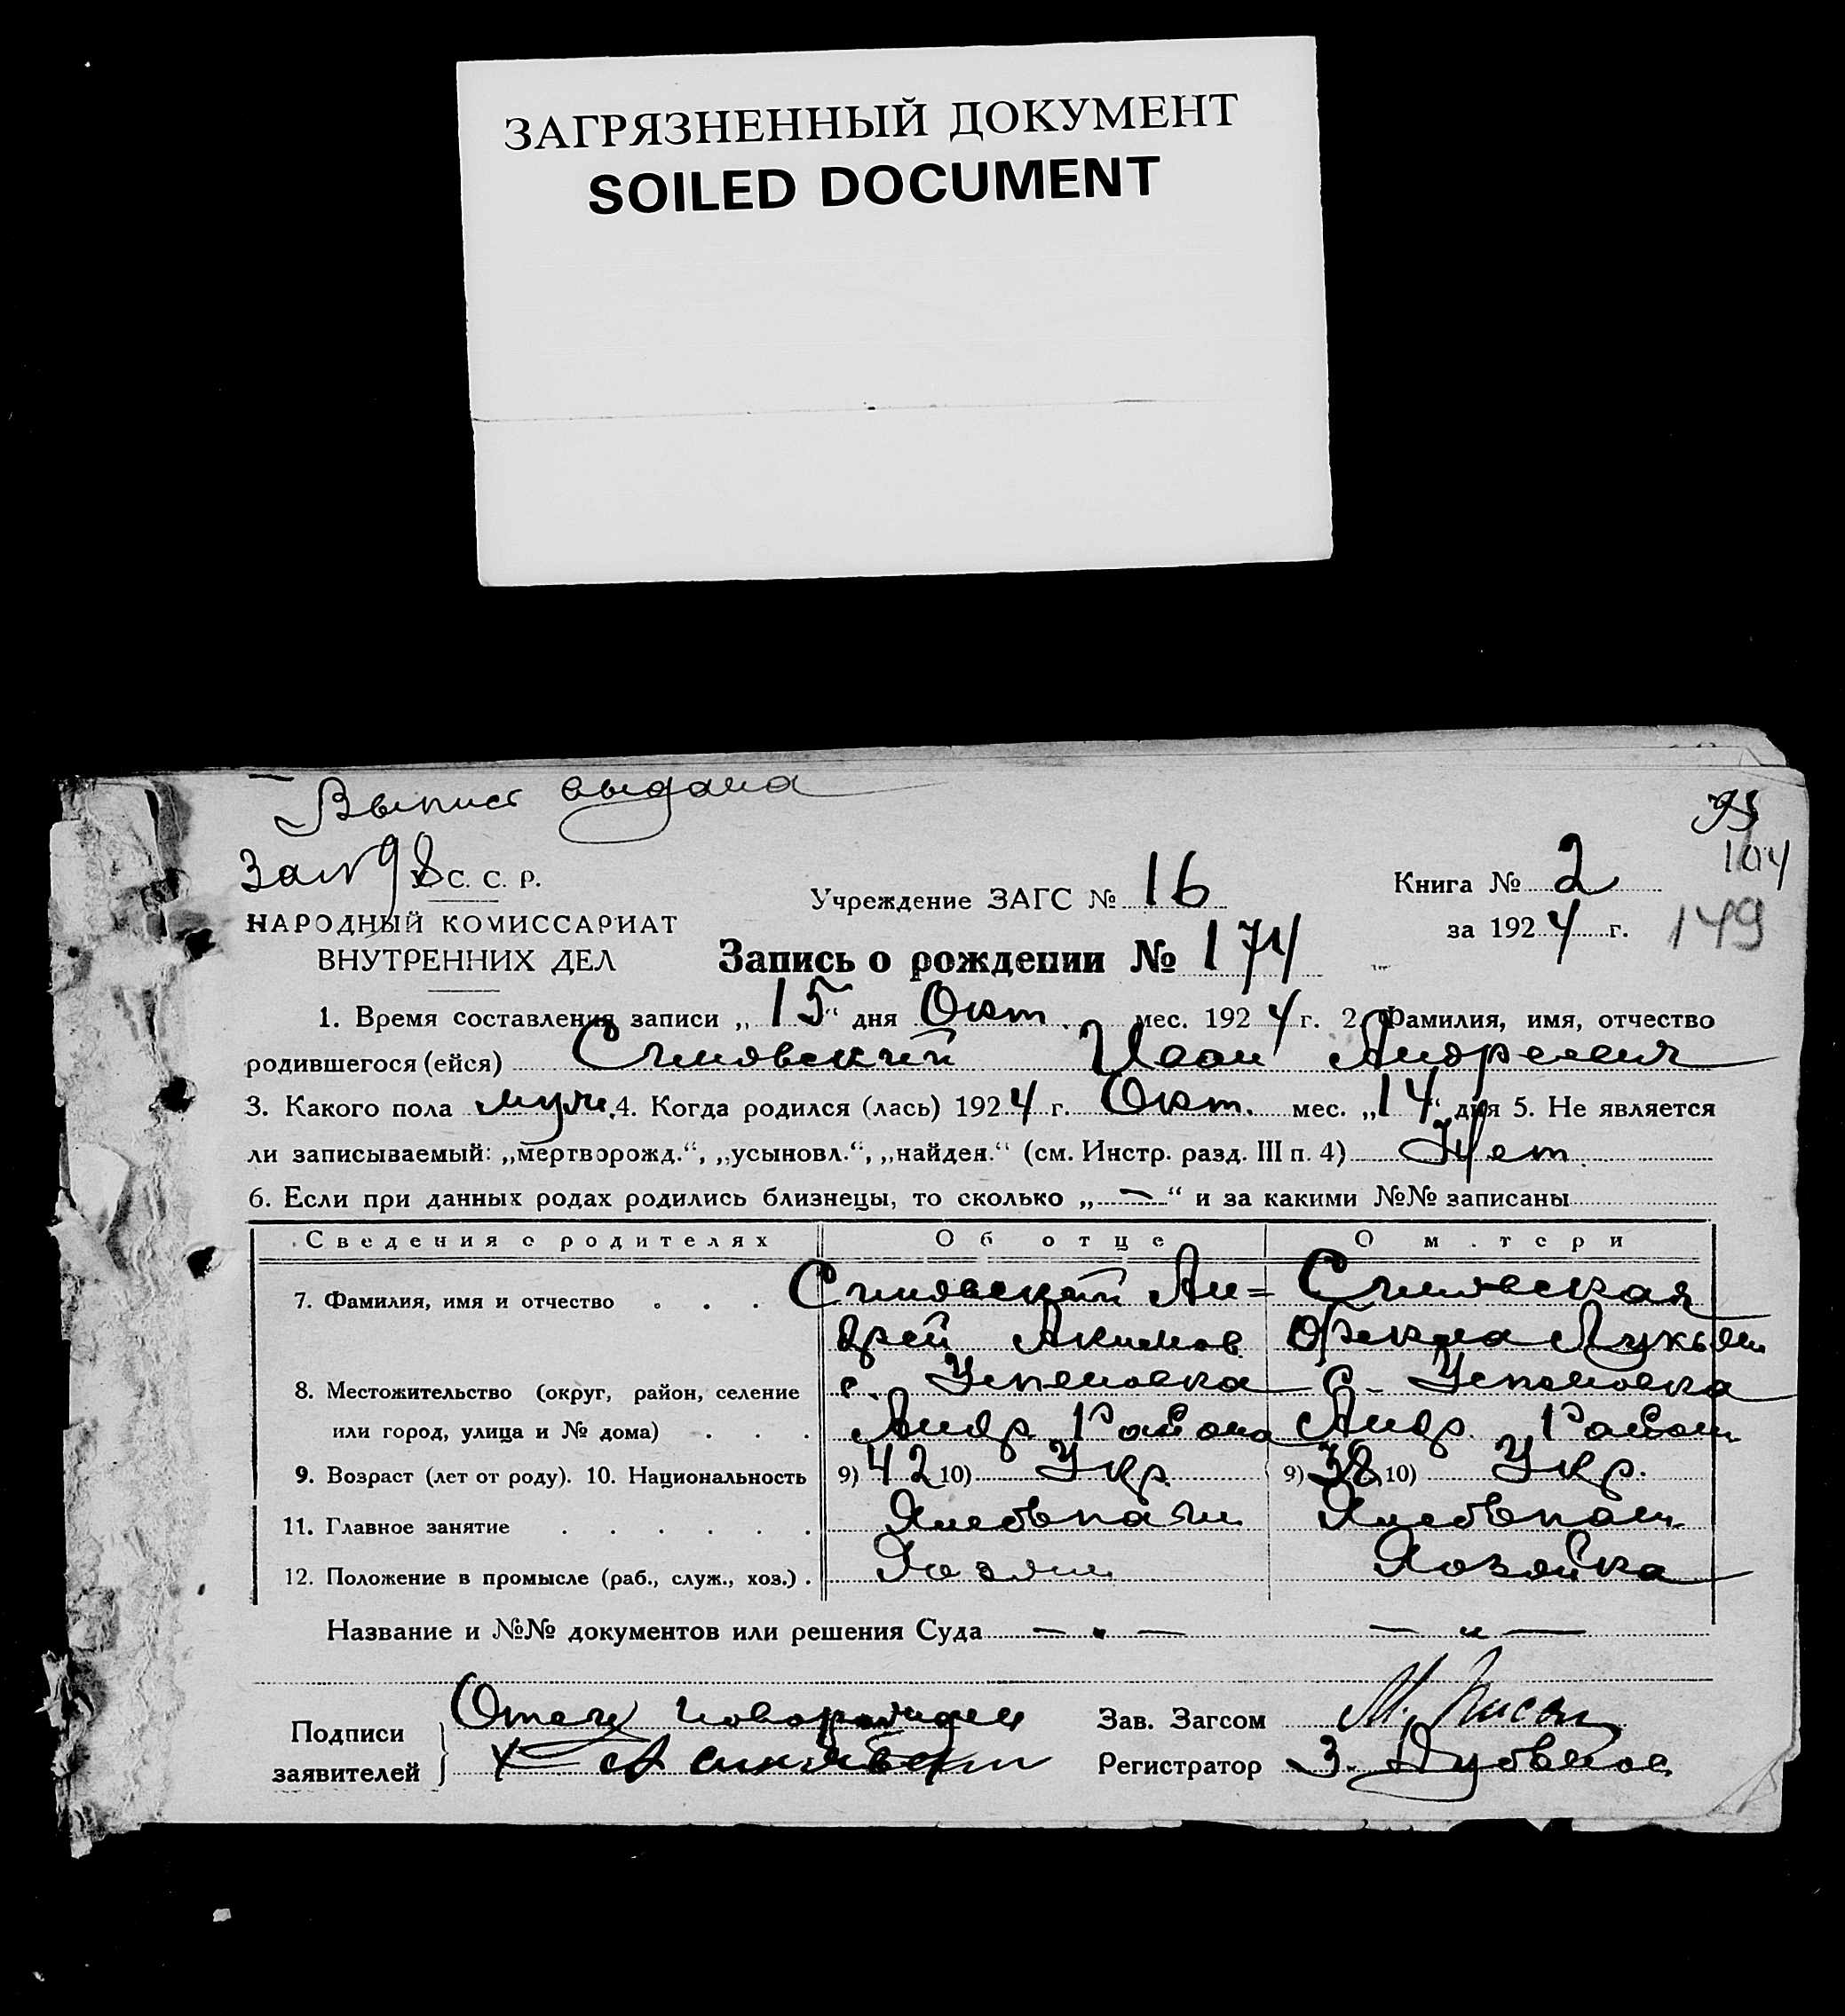 ЗАГРЯЗНЕННЫЙ ДОКУМЕНТ
SOILED DOCUMENT
Выпись выдана
95
104
149
С. С. Р.
НАРОДНЫЙ КОМИССАРИАТ
ВНУТРЕННИХ ДЕЛ
Учреждение ЗАГС № 16
Книга № 2
за 1924 г.
Запись о рождении № 174
1. Время составления записи „15“ дня Окт. мес. 1924 г. 2. Фамилия, имя, отчество
родившегося (ейся) Синявский Иван Андреевич
3. Какого пола муж. 4. Когда родился (лась) 1924 г. Окт. мес. „14“ дня 5. Не является
ли записываемый: „мертворожд.“, „усыновл.“, „найден.“ (см. Инстр. разд. III п. 4) Нет.
6. Если при данных родах родились близнецы, то сколько „—“ и за какими №№ записаны
Сведения о родителях Об отце О м.тери
7. Фамилия, имя и отчество . . . Синявский Ан= Синявская
дрей Акимов. Фекла Лукьян.
8. Местожительство (округ, район, селение с. Успеновка С. Успеновка
или город, улица и № дома) . . . Андр. Района Андр. Район.
9. Возраст (лет от роду). 10. Национальность 9) 42 10) Укр. 9) 38 10) Укр.
11. Главное занятие . . . . . . Хлебпаш. Хлебопаш.
12. Положение в промысле (раб., служ., хоз.) . Хозяин Хозяйка
Название и №№ документов или решения Суда — „ — — „ —
Подписи
заявителей
Отец новорожден
Х А Синявский
Зав. Загсом М.
Регистратор З.